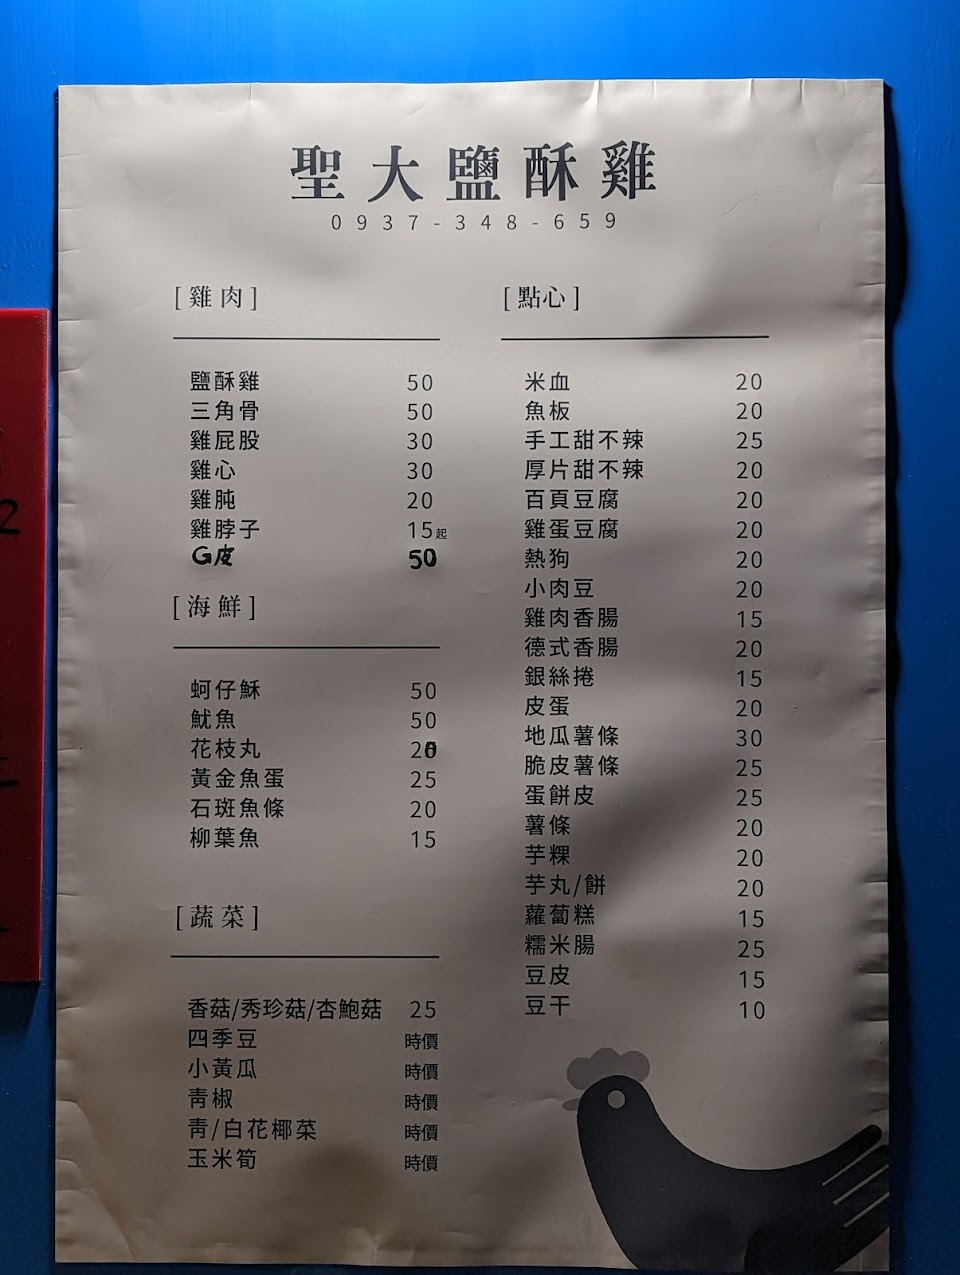 聖大鹽酥雞
0937-348-659
[雞肉]
鹽酥雞 50
三角骨 50
雞屁股 30
雞心 30
雞肫 20
雞脖子 15起
G皮 50
[海鮮]
蚵仔穌 50
魷魚 50
花枝丸 20
黃金魚蛋 25
石斑魚條 20
柳葉魚 15
[蔬菜]
香菇/秀珍菇/杏鮑菇 25
四季豆 時價
小黃瓜 時價
青椒 時價
青/白花椰菜 時價
玉米筍 時價
[點心]
米血 20
魚板 20
手工甜不辣 25
厚片甜不辣 20
百頁豆腐 20
雞蛋豆腐 20
熱狗 20
小肉豆 20
雞肉香腸 15
德式香腸 20
銀絲捲 15
皮蛋 20
地瓜薯條 30
脆皮薯條 25
蛋餅皮 25
薯條 20
芋粿 20
芋丸/餅 20
蘿蔔糕 15
糯米腸 25
豆皮 15
豆干 10